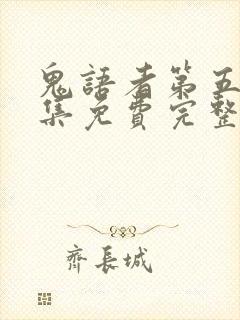 鬼語者第五
集免費完整
齊長城